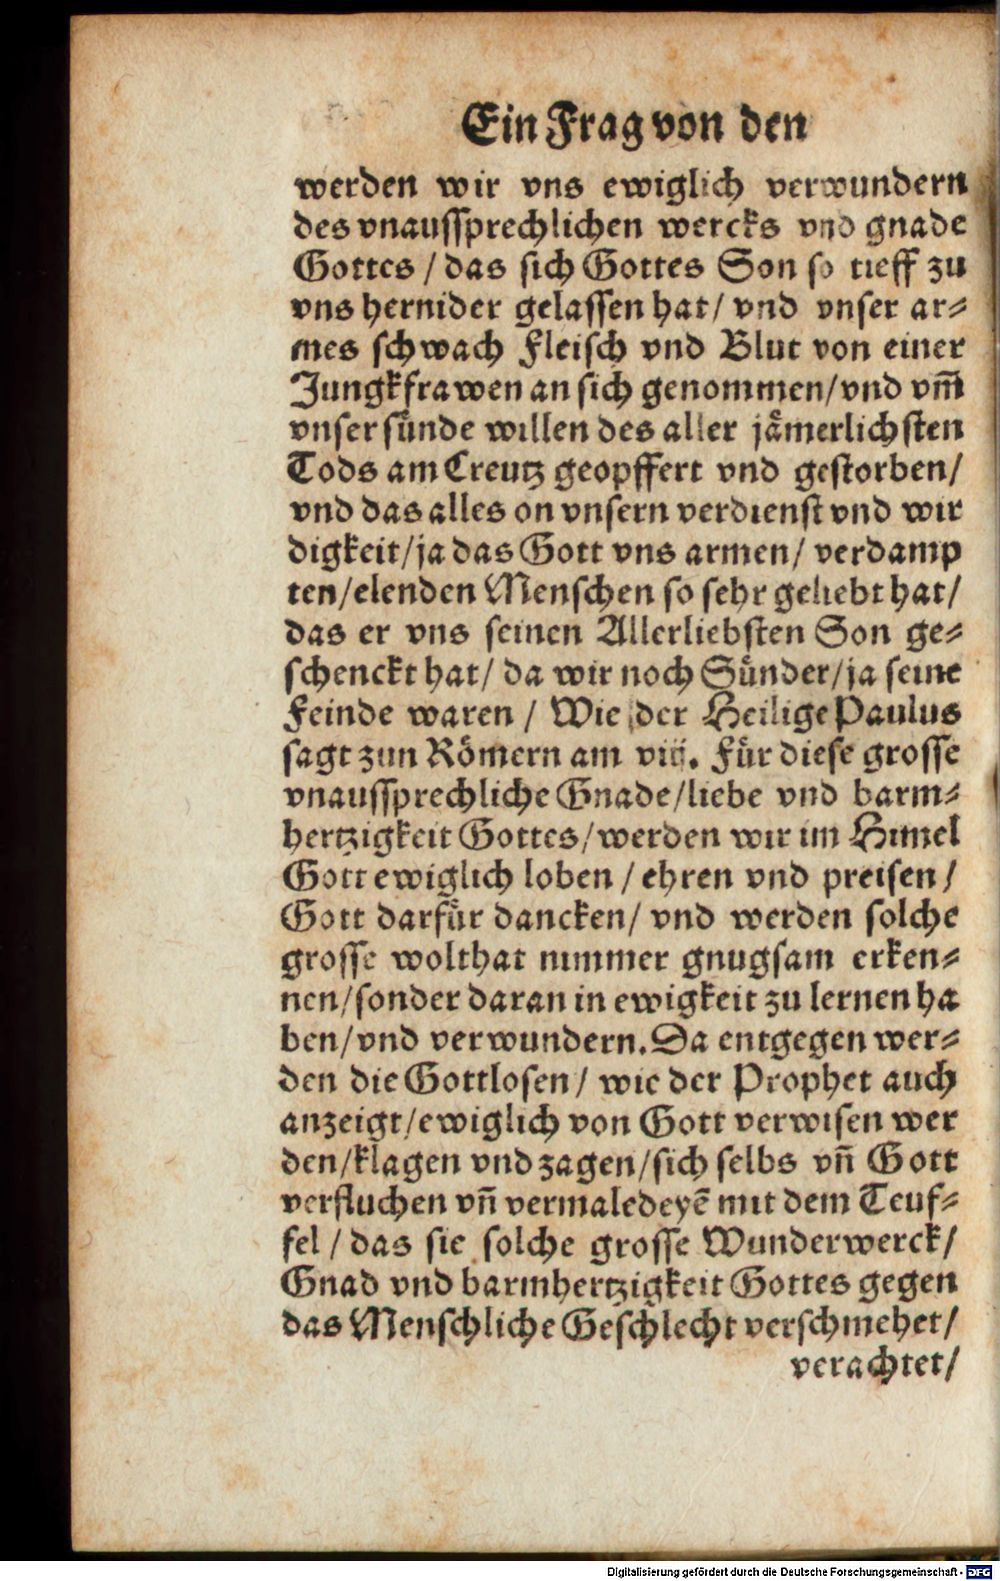 Ein Frag von den
werden wir vns ewiglich verwundern
des vnaussprechlichen wercks vnd gnade
Gottes / das sich Gottes Son so tieff zu
vns hernider gelassen hat / vnd vnser ar⸗
mes schwach Fleisch vnd Blut von einer
Jungkfrawen an sich genommen / vnd vm̃
vnser sünde willen des aller jämerlichsten
Tods am Creutz geopffert vnd gestorben /
vnd das alles on vnsern verdienst vnd wir
digkeit / ja das Gott vns armen / verdamp
ten / elenden Menschen so sehr geliebt hat /
das er vns seinen Allerliebsten Son ge⸗
schenckt hat / da wir noch Sünder / ja seine
Feinde waren / Wie der Heilige Paulus
sagt zun Römern am viij. Für diese grosse
vnaussprechliche Gnade / liebe vnd barm⸗
hertzigkeit Gottes / werden wir im Himel
Gott ewiglich loben / ehren vnd preisen /
Gott darfür dancken / vnd werden solche
grosse wolthat nimmer gnugsam erken⸗
nen / sonder daran in ewigkeit zu lernen ha
ben / vnd verwundern. Da entgegen wer⸗
den die Gottlosen / wie der Prophet auch
anzeigt / ewiglich von Gott verwisen wer
den / klagen vnd zagen / sich selbs vñ Gott
verfluchen vñ vermaledeyẽ mit dem Teuf⸗
fel / das sie solche grosse Wunderwerck /
Gnad vnd barmhertzigkeit Gottes gegen
das Menschliche Geschlecht verschmehet /
verachtet /
Digitalisierung gefördert durch die Deutsche Forschungsgemeinschaft - DFG